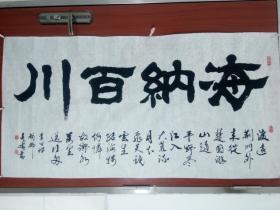 海納百川
渡遠
荆门外
来從
楚國遊
山隨
平野尽
江入
大荒流
月下
飛天镜
雲生
结海楼
仍憐
故鄉水
萬里
送行舟